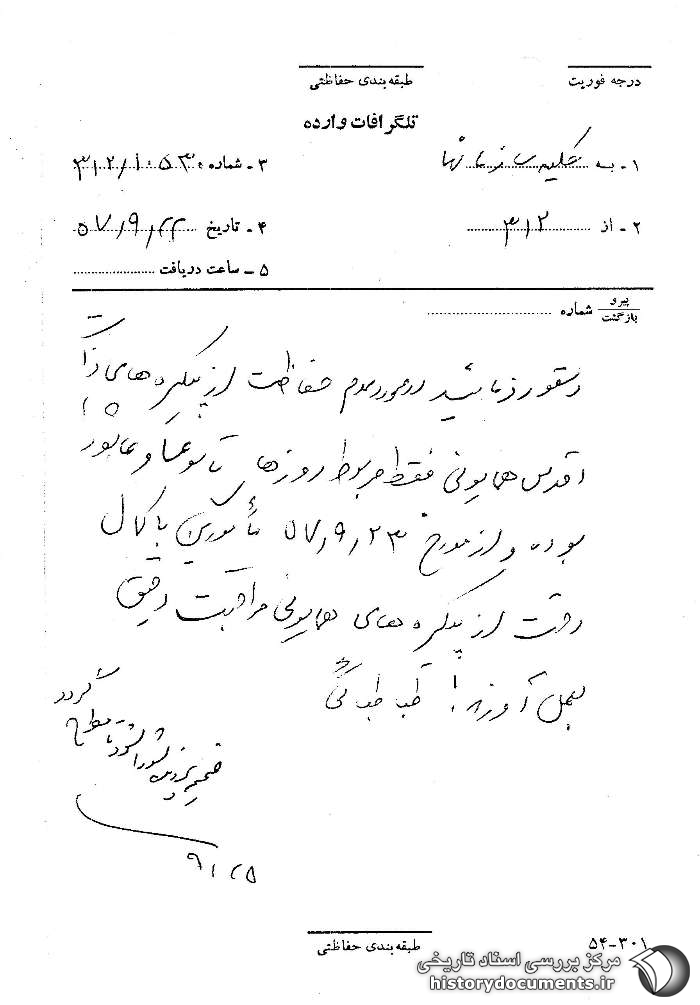 درجه فوریت
طبقه‌بندی حفاظتی
تلگرافات وارده
۱ - به کلیه سازمانها
۳ - شماره ۳۱۲/۱۰۵۳۰
۲ - از ۳۱۲
۴ - تاریخ ۵۷/۹/۲۲
۵ - ساعت دریافت
پیرو
بازگشت
شماره
دستور فرمائید در مورد عدم حفاظت از پیکره های ذات
اقدس همایونی فقط مربوط روزها تاسوعا و عاشورا
بوده و از مورخ ۵۷/۹/۲۳ مأمورین با کمال
دقت از پیکره های همایونی مراقبت دقیق
بعمل آورند. طباطبائی
گردد
۹/۲۵
طبقه‌بندی حفاظتی
۳۰۱-۵۴
مرکز بررسی اسناد تاریخی
historydocuments.ir